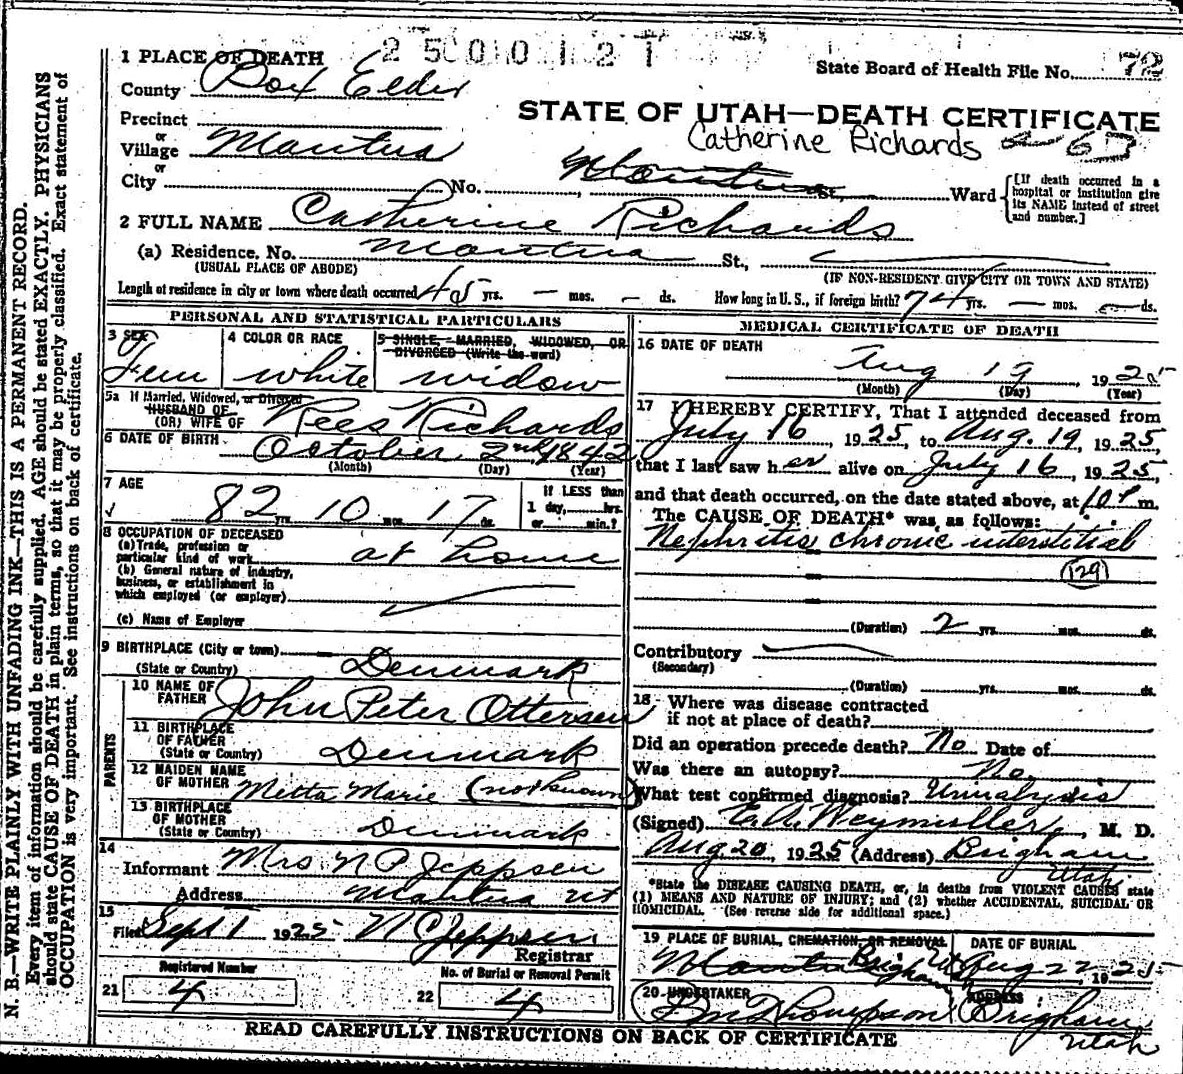 2500121
State Board of Health File No. 72
1 PLACE OF DEATH
County Box Elder
STATE OF UTAH—DEATH CERTIFICATE
Precinct
Catherine Richards
or
Village Mantua
or
City No. Mantua St., Ward
[If death occurred in a hospital or institution give its NAME instead of street and number.]
2 FULL NAME Catherine Richards
(a) Residence. No. Mantua St.,
(USUAL PLACE OF ABODE) (IF NON-RESIDENT GIVE CITY OR TOWN AND STATE)
Length of residence in city or town where death occurred 45 yrs. — mos. — ds. How long in U. S., if foreign birth? 74 yrs. — mos. — ds.
PERSONAL AND STATISTICAL PARTICULARS
3 SEX Fem
4 COLOR OR RACE white
5 SINGLE, MARRIED, WIDOWED, OR DIVORCED (Write the word) widow
5a If Married, Widowed, or Divorced
HUSBAND OF
(OR) WIFE OF Rees Richards
6 DATE OF BIRTH October 2nd 1842
(Month) (Day) (Year)
7 AGE 82 yrs. 10 mos. 17 ds.
If LESS than 1 day, hrs. or min.?
8 OCCUPATION OF DECEASED
(a) Trade, profession or particular kind of work at home
(b) General nature of industry, business, or establishment in which employed (or employer)
(c) Name of Employer
9 BIRTHPLACE (City or town)
(State or Country) Denmark
PARENTS
10 NAME OF FATHER John Peter Ottersen
11 BIRTHPLACE OF FATHER (State or Country) Denmark
12 MAIDEN NAME OF MOTHER Metta Marie (not known)
13 BIRTHPLACE OF MOTHER (State or Country) Denmark
14
Informant Mrs N P Jeppsen
Address Mantua Ut
15
Filed Sept 1 1925 N C Jeppsen
Registrar
Registered Number
21 4
No. of Burial or Removal Permit
22 4
MEDICAL CERTIFICATE OF DEATH
16 DATE OF DEATH
Aug 19, 1925
(Month) (Day) (Year)
17 I HEREBY CERTIFY, That I attended deceased from
July 16, 1925, to Aug. 19, 1925,
that I last saw her alive on July 16, 1925,
and that death occurred, on the date stated above, at 10 P m.
The CAUSE OF DEATH* was as follows:
Nephritis chronic interstitial
129
(Duration) 2 yrs. mos. ds.
Contributory
(Secondary)
(Duration) yrs. mos. ds.
18 Where was disease contracted
if not at place of death?
Did an operation precede death? No Date of
Was there an autopsy? No
What test confirmed diagnosis? Urinalysis
(Signed) E. A. Weymuller, M. D.
Aug 20, 1925 (Address) Brigham
Utah
*State the DISEASE CAUSING DEATH, or, in deaths from VIOLENT CAUSES state
(1) MEANS AND NATURE OF INJURY; and (2) whether ACCIDENTAL, SUICIDAL OR
HOMICIDAL. (See reverse side for additional space.)
19 PLACE OF BURIAL, CREMATION, OR REMOVAL DATE OF BURIAL
Mantua Brigham Ut Aug 22 1925
20 UNDERTAKER ADDRESS
Thompson Brigham
Utah
READ CAREFULLY INSTRUCTIONS ON BACK OF CERTIFICATE
N. B.—WRITE PLAINLY WITH UNFADING INK—THIS IS A PERMANENT RECORD.
Every item of information should be carefully supplied. AGE should be stated EXACTLY. PHYSICIANS
should state CAUSE OF DEATH in plain terms, so that it may be properly classified. Exact statement of
OCCUPATION is very important. See instructions on back of certificate.